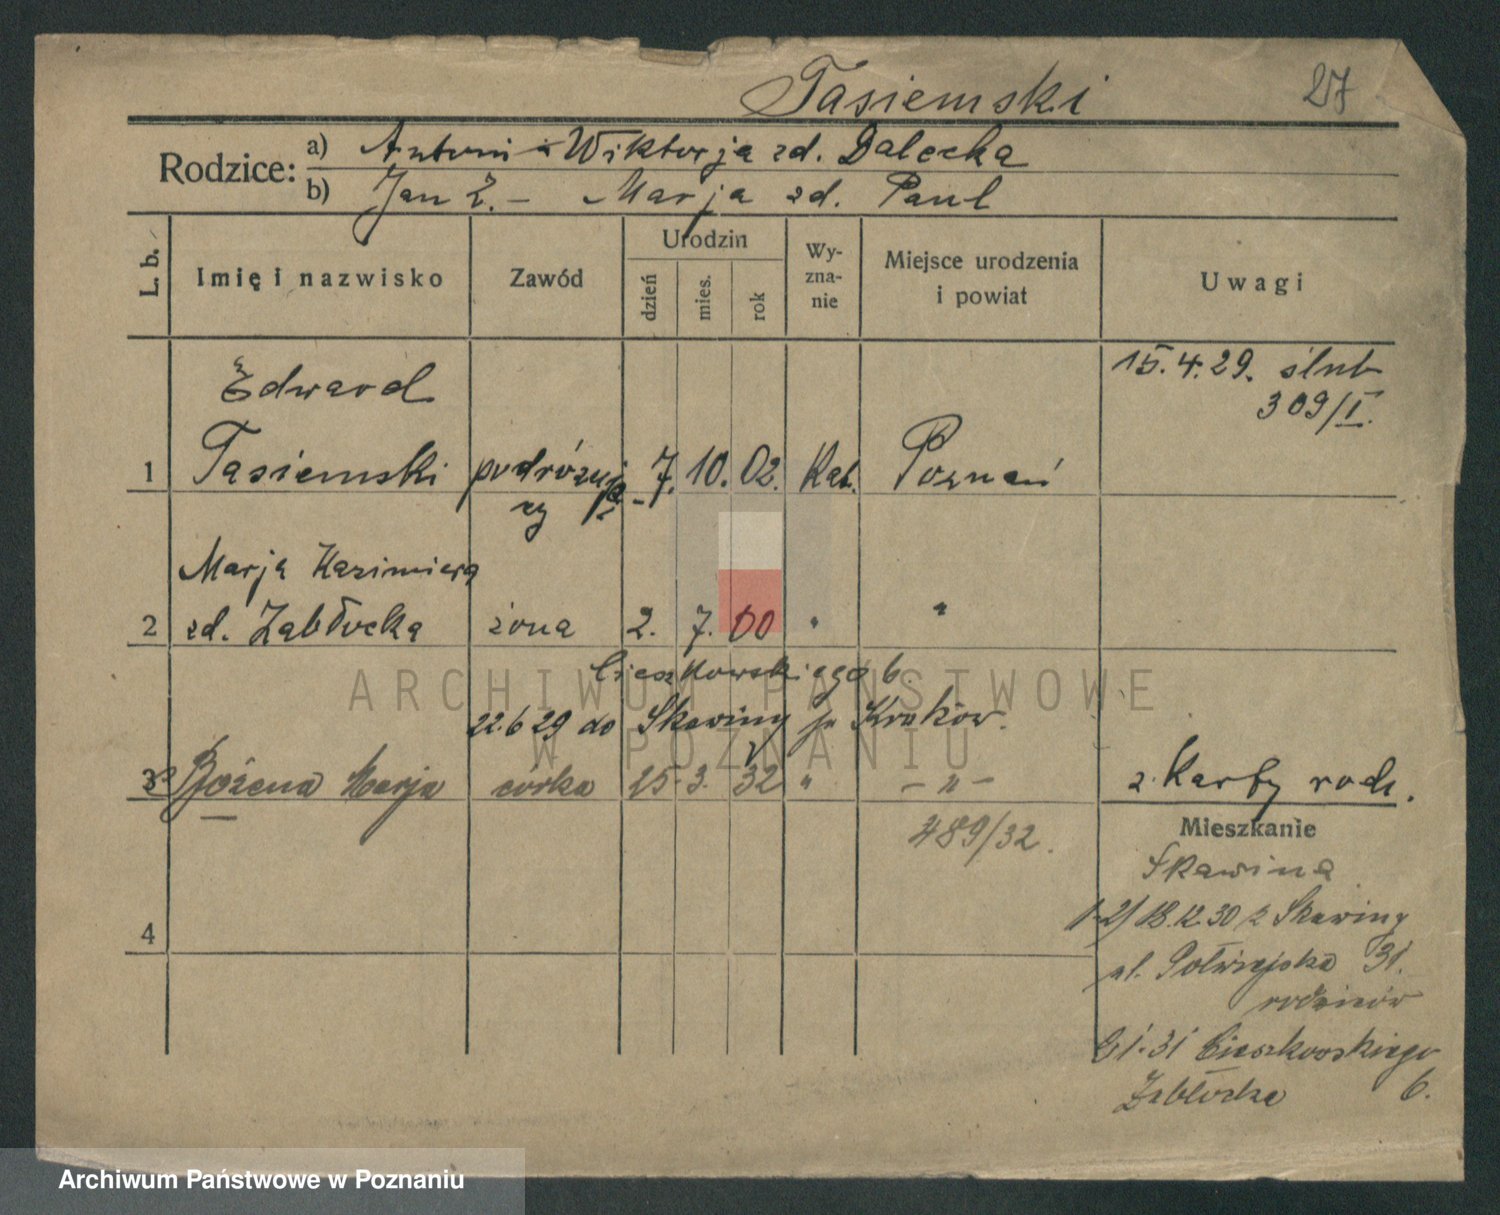 Tasiemski
27
Rodzice: a) Antoni - Wiktorja zd. Dalecka
b) Jan Z. - Marja zd. Paul
L. b. Imię i nazwisko Zawód Urodzin dzień mies. rok Wy-zna-nie Miejsce urodzenia i powiat Uwagi
15.4.29. ślub
309/I.
Edward
1 Tasiemski podróżują- 7. 10. 02. Kat. Poznań
cy
Marja Kazimiera
2 zd. Zabłocka żona 2. 7. 00 " "
Cieszkowskiego 6
22.6 29 do Skawiny p. Kraków.
3 Bożena Marja córka 25. 3. 32 " - " -
z Karty rodz.
489/32.
Mieszkanie
Skawina
1-2/ 18.12.30 z Skawiny
ul. Półwiejska 31.
rodziców
4
6 1. 31 Cieszkowskiego
Zabłocka 6.
ARCHIWUM PAŃSTWOWE
W POZNANIU
Archiwum Państwowe w Poznaniu